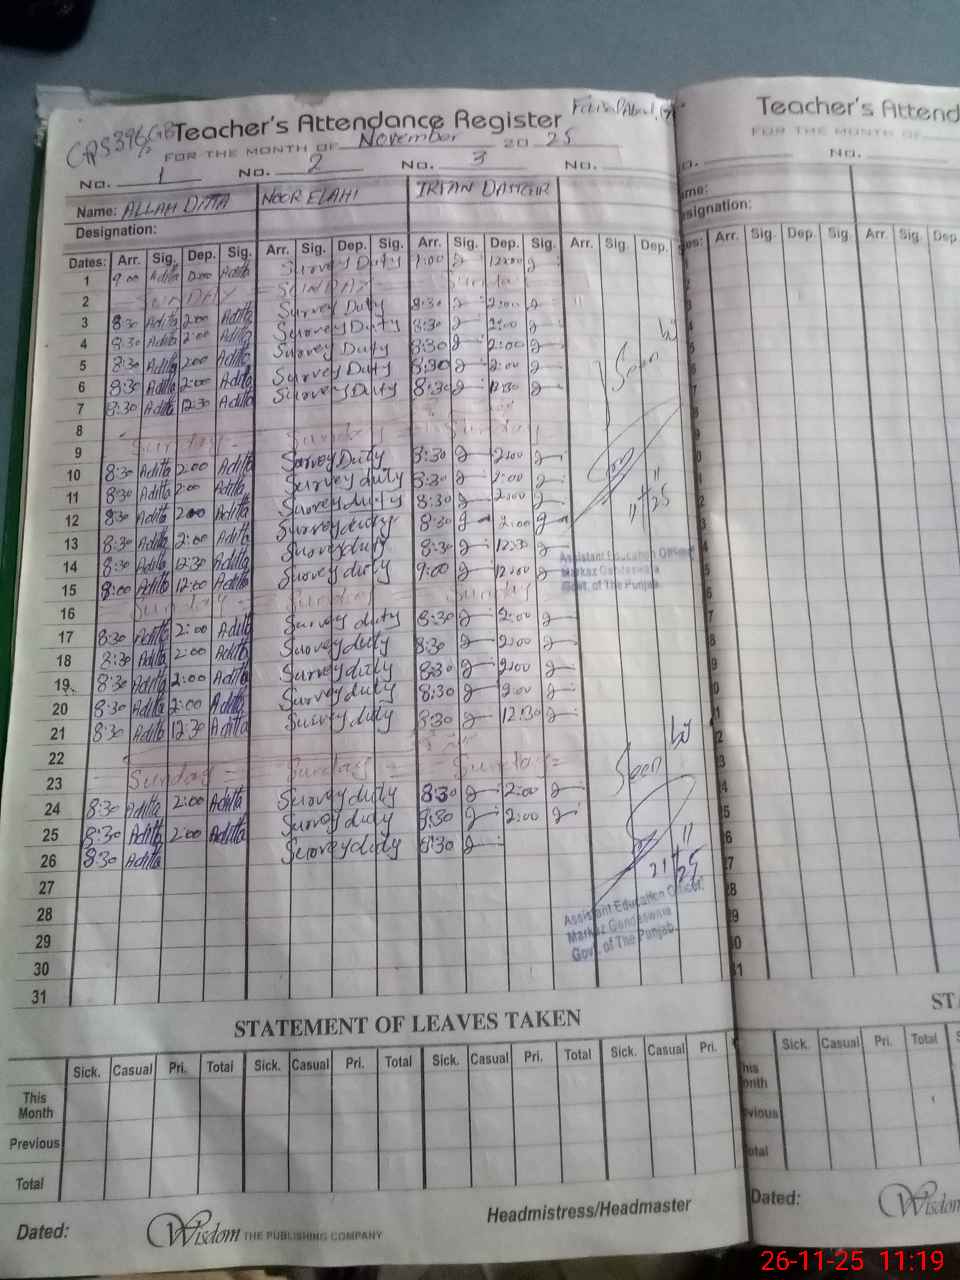 Teacher's Attendance Register
FOR THE MONTH OF November 20 25
No. 1 No. 2 No. 3 No.
Name: ALLAH DITTA NOOR ELAHI IRFAN DASTGIR
Designation:
Dates: Arr. Sig. Dep. Sig. Arr. Sig. Dep. Sig. Arr. Sig. Dep. Sig. Arr. Sig. Dep.
1 9:00 Aditta Aditta Survey Duty 12:00
2 SUNDAY SUNDAY Sunday
3 8:30 Aditta 2:00 Aditta Survey Duty 8:30 2:00
4 8:30 Aditta 2:00 Aditta Survey Duty 8:30 2:00
5 8:30 Aditta 2:00 Aditta Survey Duty 8:30 2:00
6 8:30 Aditta 2:00 Aditta Survey Duty 8:30 2:00
7 8:30 Aditta 12:30 Aditta Survey Duty 8:30 12:30
8
9 Sunday Sunday Sunday
10 8:30 Aditta 2:00 Aditta Survey Duty 8:30 2:00
11 8:30 Aditta 2:00 Aditta Survey duty 8:30 2:00
12 8:30 Aditta 2:00 Aditta Survey duty 8:30 2:00
13 8:30 Aditta 2:00 Aditta Survey duty 8:30 2:00
14 8:30 Aditta 12:30 Aditta Survey duty 8:30 12:30
15 8:00 Aditta 12:00 Aditta Survey duty 9:00 12:00
16 Sunday Sunday Sunday
17 8:30 Aditta 2:00 Aditta Survey duty 8:30 2:00
18 8:30 Aditta 2:00 Aditta Survey duty 8:30 2:00
19 8:30 Aditta 2:00 Aditta Survey duty 8:30 2:00
20 8:30 Aditta 2:00 Aditta Survey duty 8:30 2:00
21 8:30 Aditta 12:30 Aditta Survey duty 8:30 12:30
22
23 Sunday Sunday Sunday
24 8:30 Aditta 2:00 Aditta Survey duty 8:30 2:00
25 8:30 Aditta 2:00 Aditta Survey duty 8:30 2:00
26 8:30 Aditta Survey duty 8:30
27
28
29
30
31
Seen
11/11/25
Assistant Education Officer
Markaz Gandaswala
Govt. of The Punjab
Seen
21/11/25
Assistant Education Officer
Markaz Gandaswala
Govt. of The Punjab
STATEMENT OF LEAVES TAKEN
Sick. Casual Pri. Total Sick. Casual Pri. Total Sick. Casual Pri. Total Sick. Casual Pri.
This Month
Previous
Total
Headmistress/Headmaster
Dated:
Wisdom THE PUBLISHING COMPANY
Teacher's Attend
FOR THE MONTH OF
No.
Arr. Sig. Dep. Sig. Arr. Sig. Dep
Sick. Casual Pri. Total
Dated:
Wisdom
26-11-25 11:19